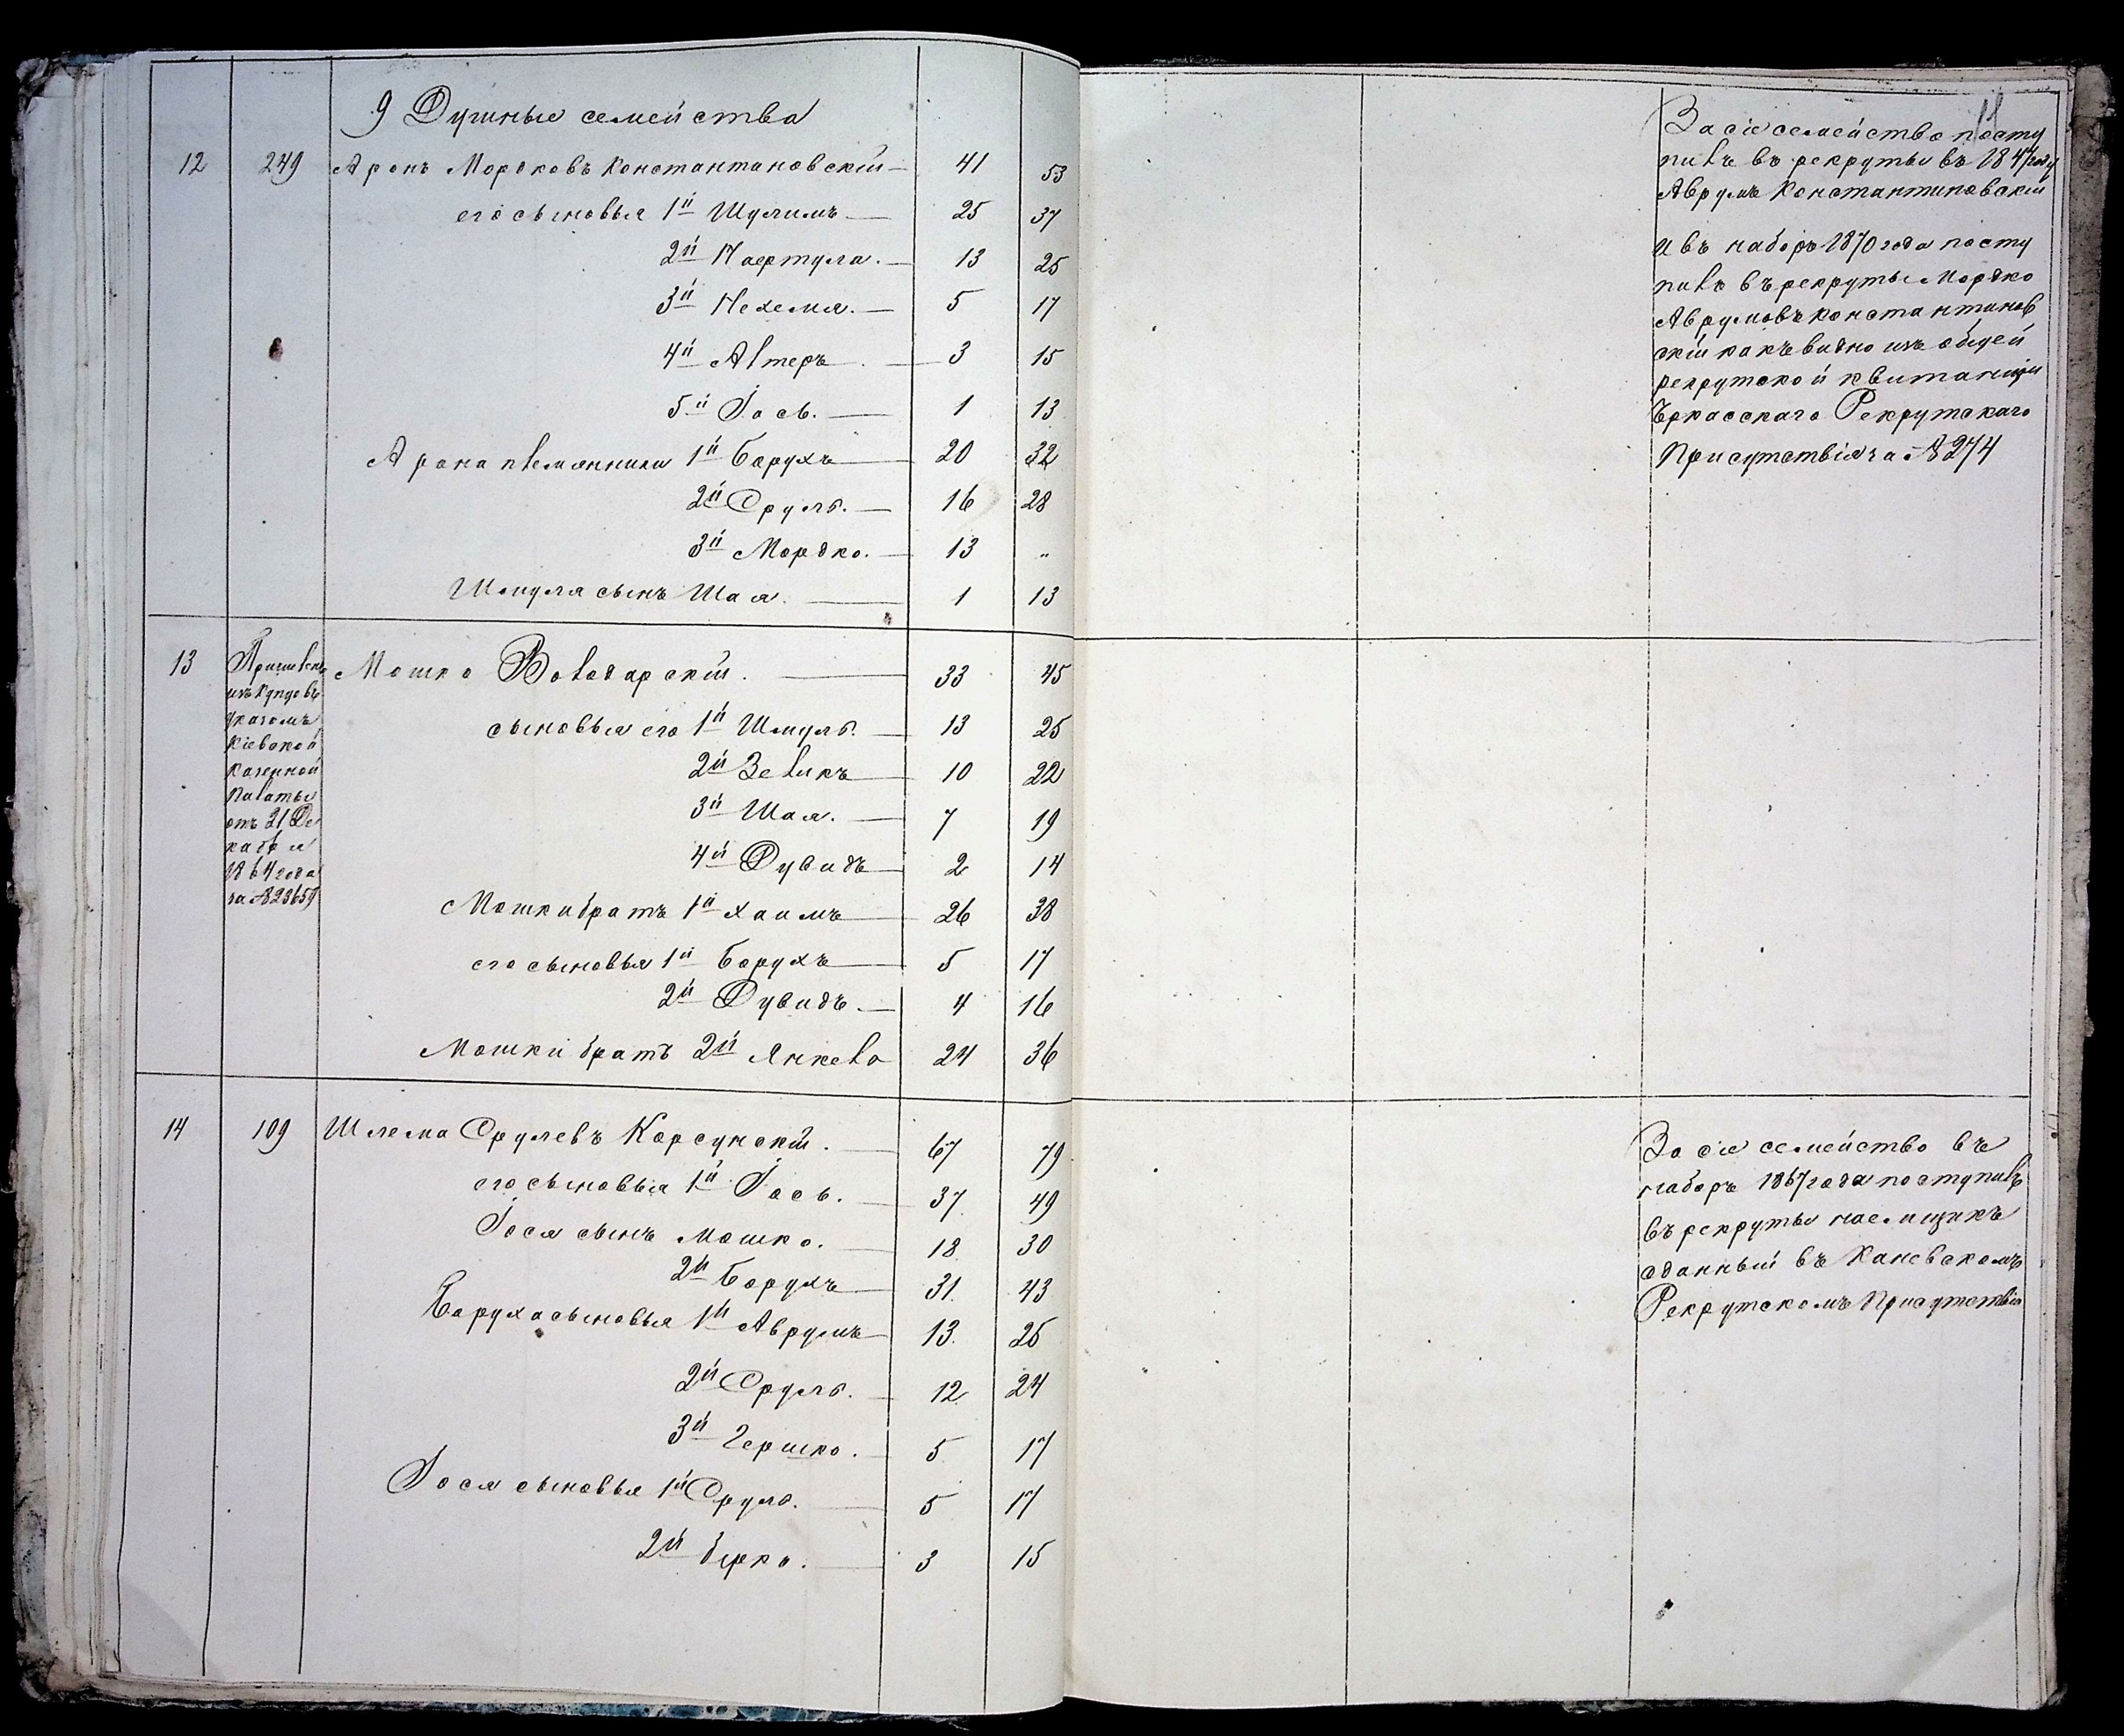 11
9 Душные семейства
12 249 Аронъ Мордковъ Константановскій 41 53
его сыновья 1й Шулимъ 25 37
2й Нафтула. 13 25
3й Нехемя. 5 17
4й Алтеръ 3 15
5й Іось. 1 13
Арона племянники 1й Борухъ 20 32
2й Сруль. 16 28
3й Мордко. 13 „
Шмуля сынъ Шая. 1 13
За сіе семейство посту
пилъ въ рекруты въ 1847 году
Аврумъ Константиновскій
и въ наборъ 1870 года посту
пилъ въ рекруты Мордко
Аврумовъ Константинов
скій какъ видно изъ общей
рекрутской квитанціи
Черкасскаго Рекрутскаго
Присутствія за № 274
13 Мошко Володарскій. 33 45
Причислен
изъ купцовъ
указомъ
Кіевской
Казенной
Палаты
отъ 21 Де
кабря
1864 года
за № 23659
сыновья его 1й Шмуль. 13 25
2й Зеликъ 10 22
3й Шая. 7 19
4й Дувидъ 2 14
Мошки братъ 1й Хаимъ 26 38
его сыновья 1й Борухъ 5 17
2й Дувидъ. 4 16
Мошки братъ 2й Янкель 24 36
14 109 Шлема Срулевъ Корсунскій. 67 79
его сыновья 1й Іось. 37 49
Іося сынъ Мошко. 18 30
2й Борухъ 31. 43
Боруха сыновья 1й Аврумъ 13. 25
2й Сруль. 12 24
3й Гершко. 5 17
Іося сыновья 1й Сруль. 5 17
2й Берко. 3 15
За сіе семейство въ
наборъ 1867 года поступилъ
въ рекруты наемщикъ
сданный въ Каневскомъ
Рекрутскомъ Присутствіи